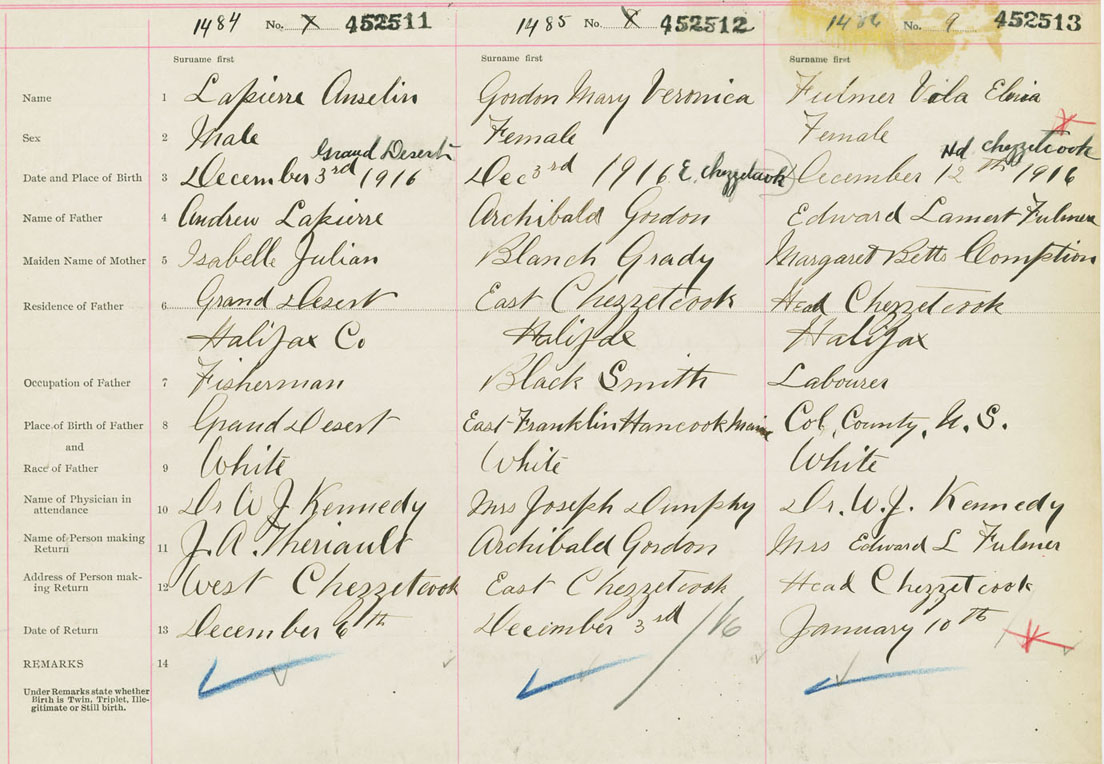 1484 No. X 452511 1485 No. 8 452512 1486 No. 9 452513
Surname first Surname first Surname first
Name 1 Lapierre Anselin Gordon Mary Veronica Fulmer Viola
Sex 2 Male Female Female
Grand Desert Hd Chezzetcook
Date and Place of Birth 3 December 3rd 1916 Dec 3rd 1916 E. Chezzetcook December 12th 1916
Name of Father 4 Andrew Lapierre Archibald Gordon Edward Lamert Fulmer
Maiden Name of Mother 5 Isabelle Julian Blanch Grady Margaret Betts Comption
Residence of Father 6 Grand Desert East Chezzetcook Head Chezzetcook
Halifax Co Halifax Halifax
Occupation of Father 7 Fisherman Black Smith Labourer
Place of Birth of Father 8 Grand Desert East Franklin Hancook Maine Col. County, N. S.
and
Race of Father 9 White White White
Name of Physician in
attendance 10 Dr W J. Kennedy Mrs Joseph Dumphy Dr. W. J. Kennedy
Name of Person making
Return 11 J. A. Theriault Archibald Gordon Mrs Edward L Fulmer
Address of Person mak-
ing Return 12 West Chezzetcook East Chezzetcook Head Chezzetcook
Date of Return 13 December 6th December 3rd /16 January 10th
REMARKS 14
Under Remarks state whether
Birth is Twin, Triplet, Ille-
gitimate or Still birth.